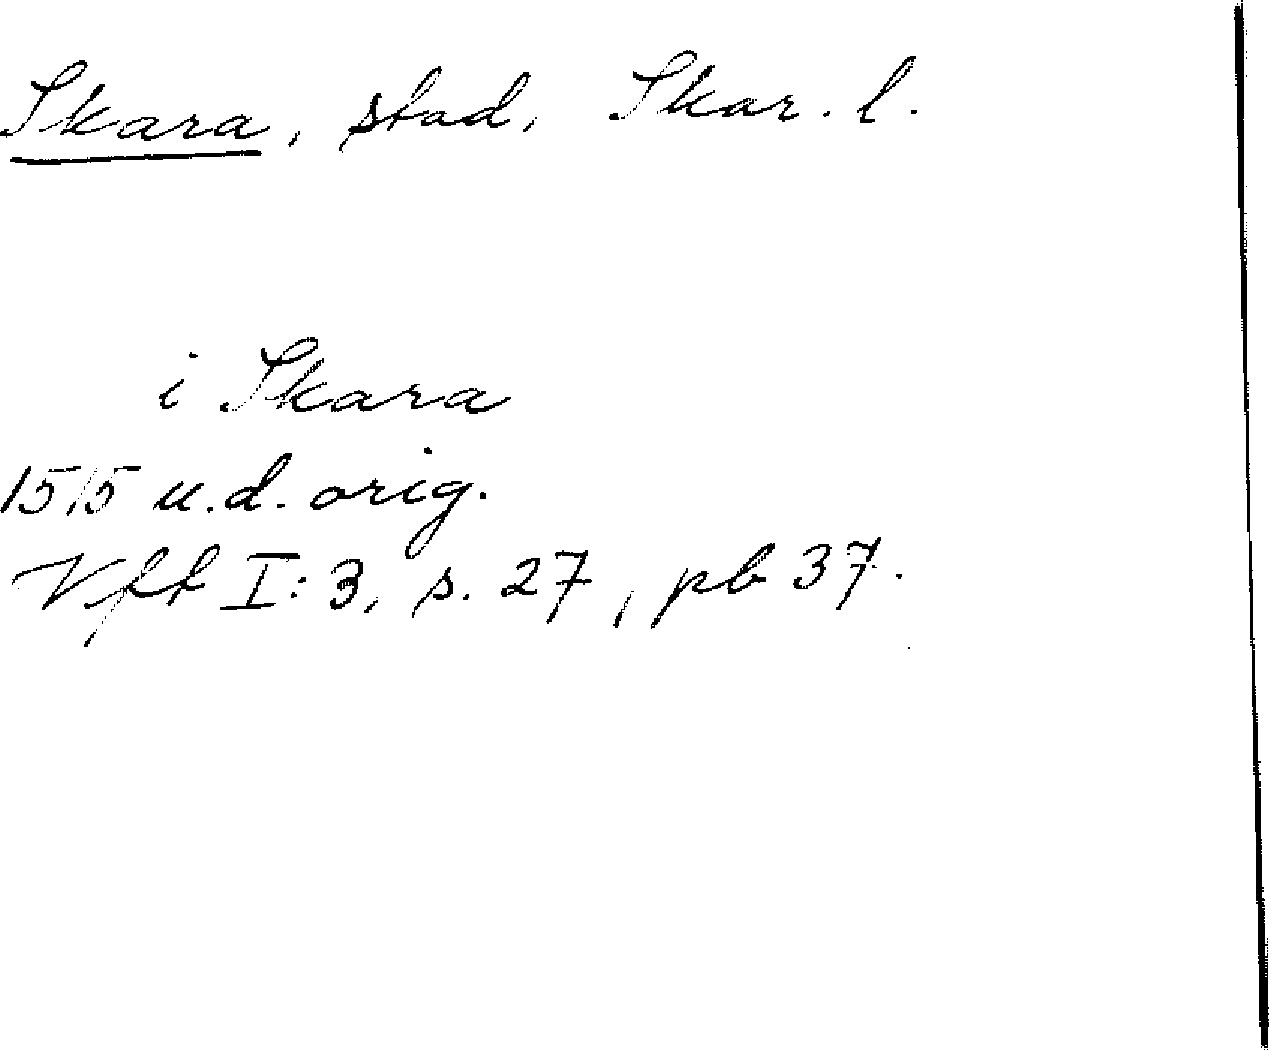 Skara, stad, Skar. l.
i Skara
1515 u.d. orig.
Vfft I:3, s. 27, pb 37.